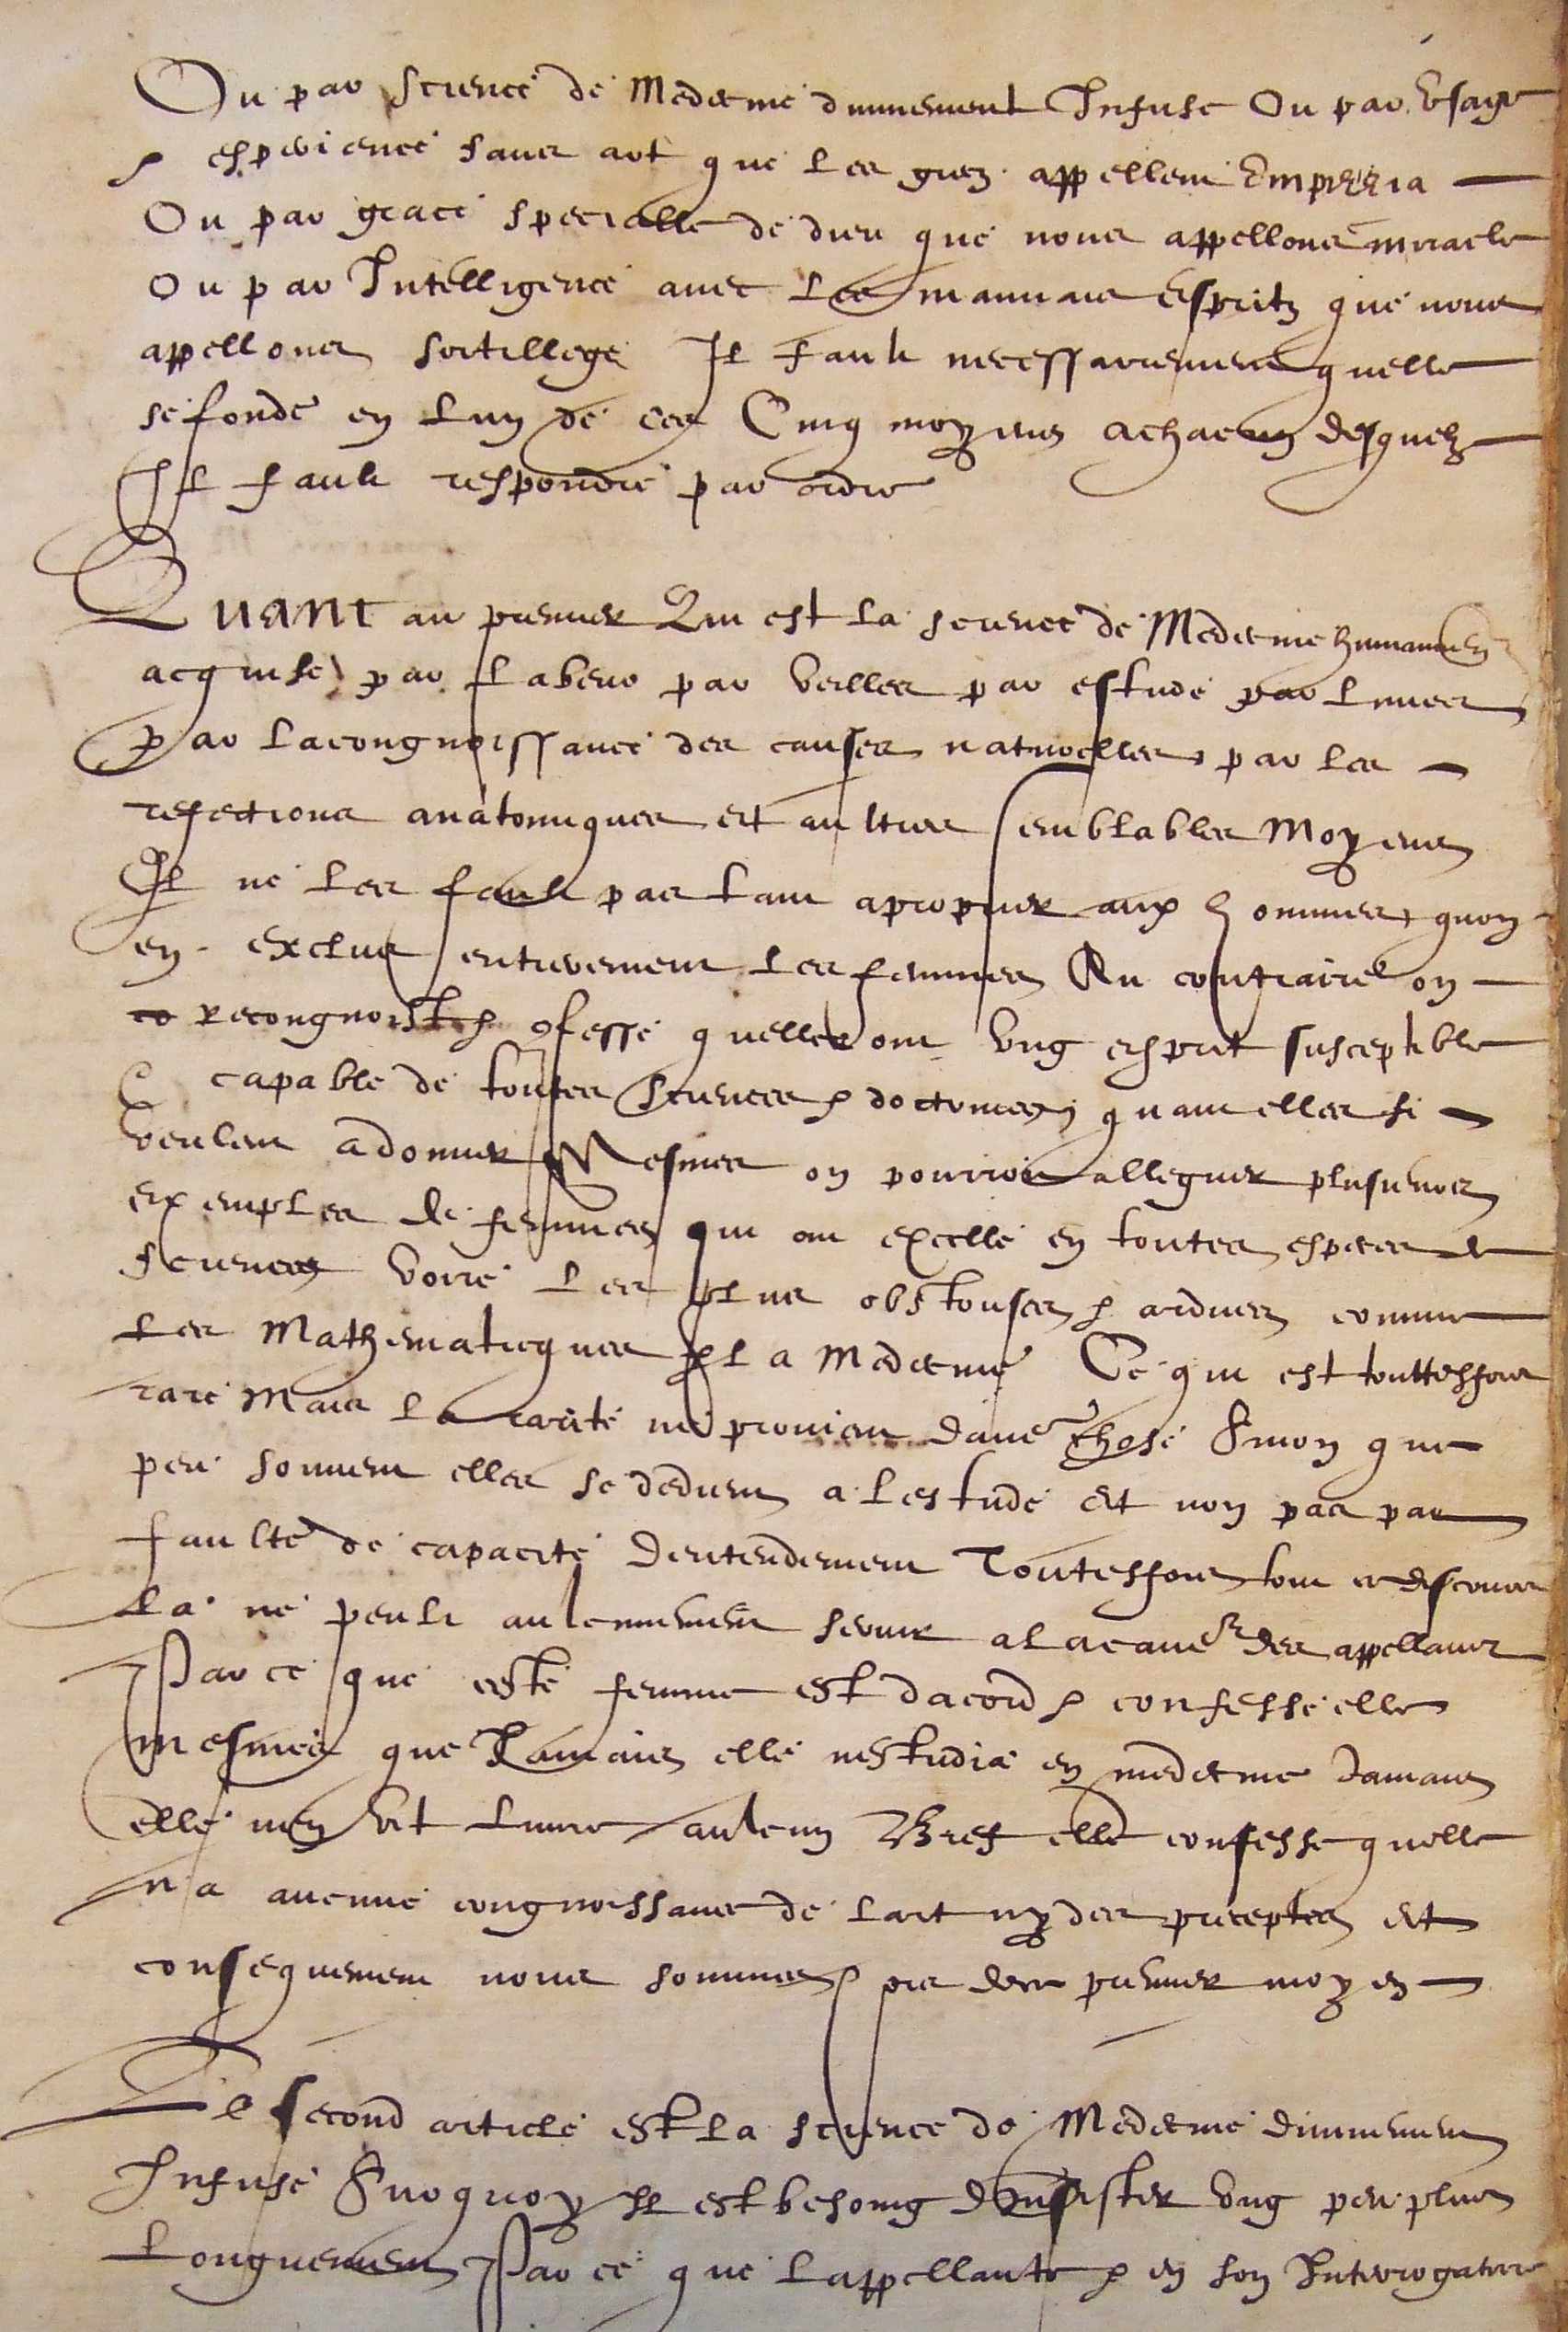 Ou par science de Medecine divinement Infuse Ou par Usage
& esperience sans art que les grez appellent Empeeria
Ou par grace specialle de dieu que nous appellons miracle
Ou par Intelligence avec les mauvais Espritz que nous
appellons sortillege Il fault necessairement quelle
se fonde en lun de ces Cinq moyens achacun desquelz
Il fault respondre par ordre
Quant au premier Qui est la science de Medecine humainem
acquise par labeur par veilles par estude par livres
par lacongnoissance des causes naturelles par les
resections anatomiques et aultres semblables Moyens
Il ne les fault pas tant aproprier aux hommes quon
en exclue entierement les femmes Au contraire on
recongnoist & cfesse quelles ont ung esprit susceptible
& capable de toutes sciences & doctrines quant elles si
veulent adonner Mesmes on pourroit alleguer plusieurs
exemples de femmes qui ont excellé en toutes especes de
sciences voire les plus obstruses & ardues comme
les Mathematicques & la Medecine Ce qui est touttesfois
rare Mais la rarite ne provient daue chose Sinon que
peu souvent elles se dedient a lestude et non pas par
faulte de capacité dentendement Touttesfois tout ce discours
la ne peult aulcunement servir a la cause des appellans
Par ce que ceste femme est dacord & confesse elle
mesmes que Jamais elle nestudia en medecine Jamais
elle nen vit livre aulcun Bref elle confesse quelle
n a aucune congnoissance de lart ny des preceptes et
consequemment nous sommes dce premier moyen
Le second article est la science de Medecine divinement
Infuse Surquoy Il est besoing dInsister ung peu plus
Longuement Par ce que lappellante & en son Interrogatoire